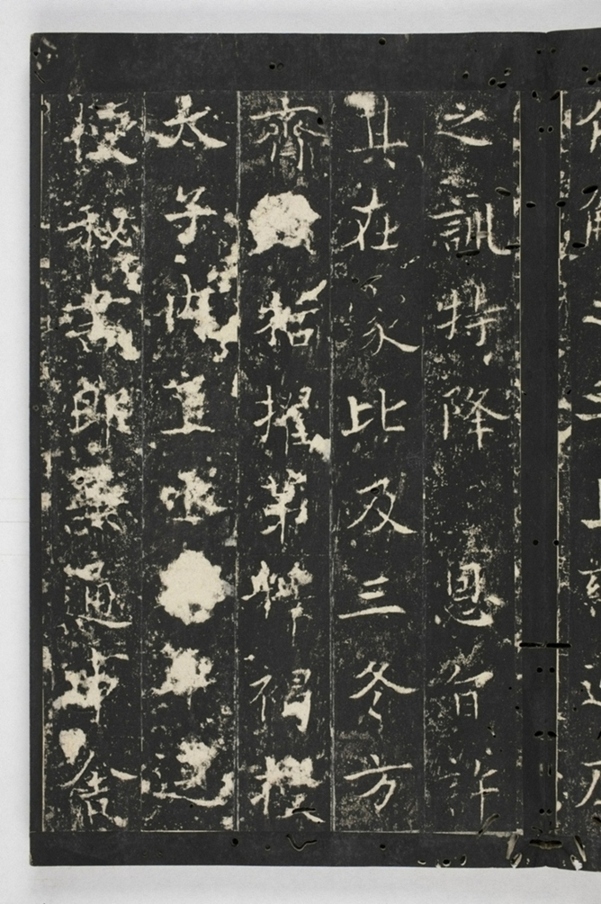 之訓特降恩旨許
其在家比及三冬方
齊 始擢第釋褐授
太子内直丞 遷
授秘書郎兼通事舍